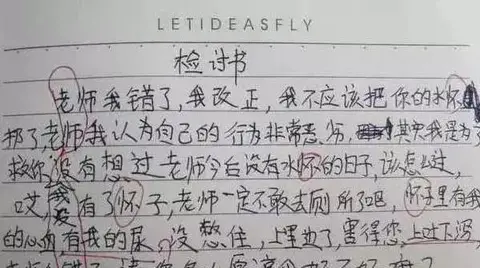 LETIDEASFLY
检讨书
老师我错了,我改正,我不应该把你的水怀
扔了老师我认为自己的行为非常恶劣,其实我是为了
救你没有想过老师今后没有水怀的日子,该怎么过,
哎,我没有了怀子,老师一定不敢去厕所了吧,怀子里有我
的心血有我的尿,没憋住,上里边了,害得您,上吐下泻,